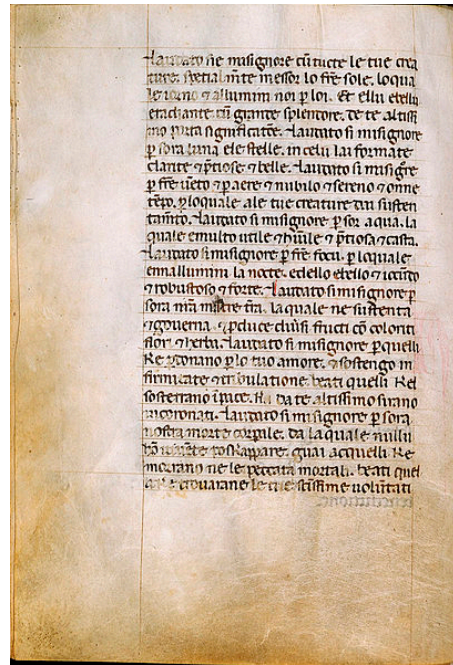 Laudato sie misignore cū tucte le tue crea
ture. spetialmēte messor lo frē sole. loqual
le iorno ⁊ allumini noi ꝑ loi. Et ellu ebellu
eradiante cū grande splendore. de te altissi
mo porta significatōe. Laudato si misignore
ꝑ sora luna ele stelle. in celu lai formate
clarite ⁊ p̄tiose ⁊ belle. Laudato si misigre
ꝑ frē uēto ⁊ ꝑ aere ⁊ nubilo ⁊ sereno ⁊ onne
tēpo. ꝑ loquale ale tue creature dai susten
tamēto. Laudato si misignore ꝑ sor aqua. la
quale emulto utile ⁊ humile ⁊ p̄tiosa ⁊ casta.
Laudato si misignore ꝑ frē focu. ꝑ loquale
ennallumini la nocte. edello ebello ⁊ iocūdo
⁊ robustoso ⁊ forte. Laudato si misignore ꝑ
sora nr̄a matre tr̄ra. la quale ne sustenta
⁊ governa. ⁊ ꝓduce diuersi fructi cō coloriti
flori ⁊ herba. Laudato si misignore ꝑ quelli
ke ꝑdonano ꝑ lo tuo amore. ⁊ sostengo in
firmitate ⁊ tribulatione. beati quelli kel
sosterrano ī pace. ka da te altissimo sirano
incoronati. Laudato si misignore ꝑ sora
nostra morte corporale. da la quale nullu
hō uiuēte poskappare. guai acquelli ke
morrano ne le peccata mortali. beati quel
li ke trouarane le tue sc̄issime uoluntati